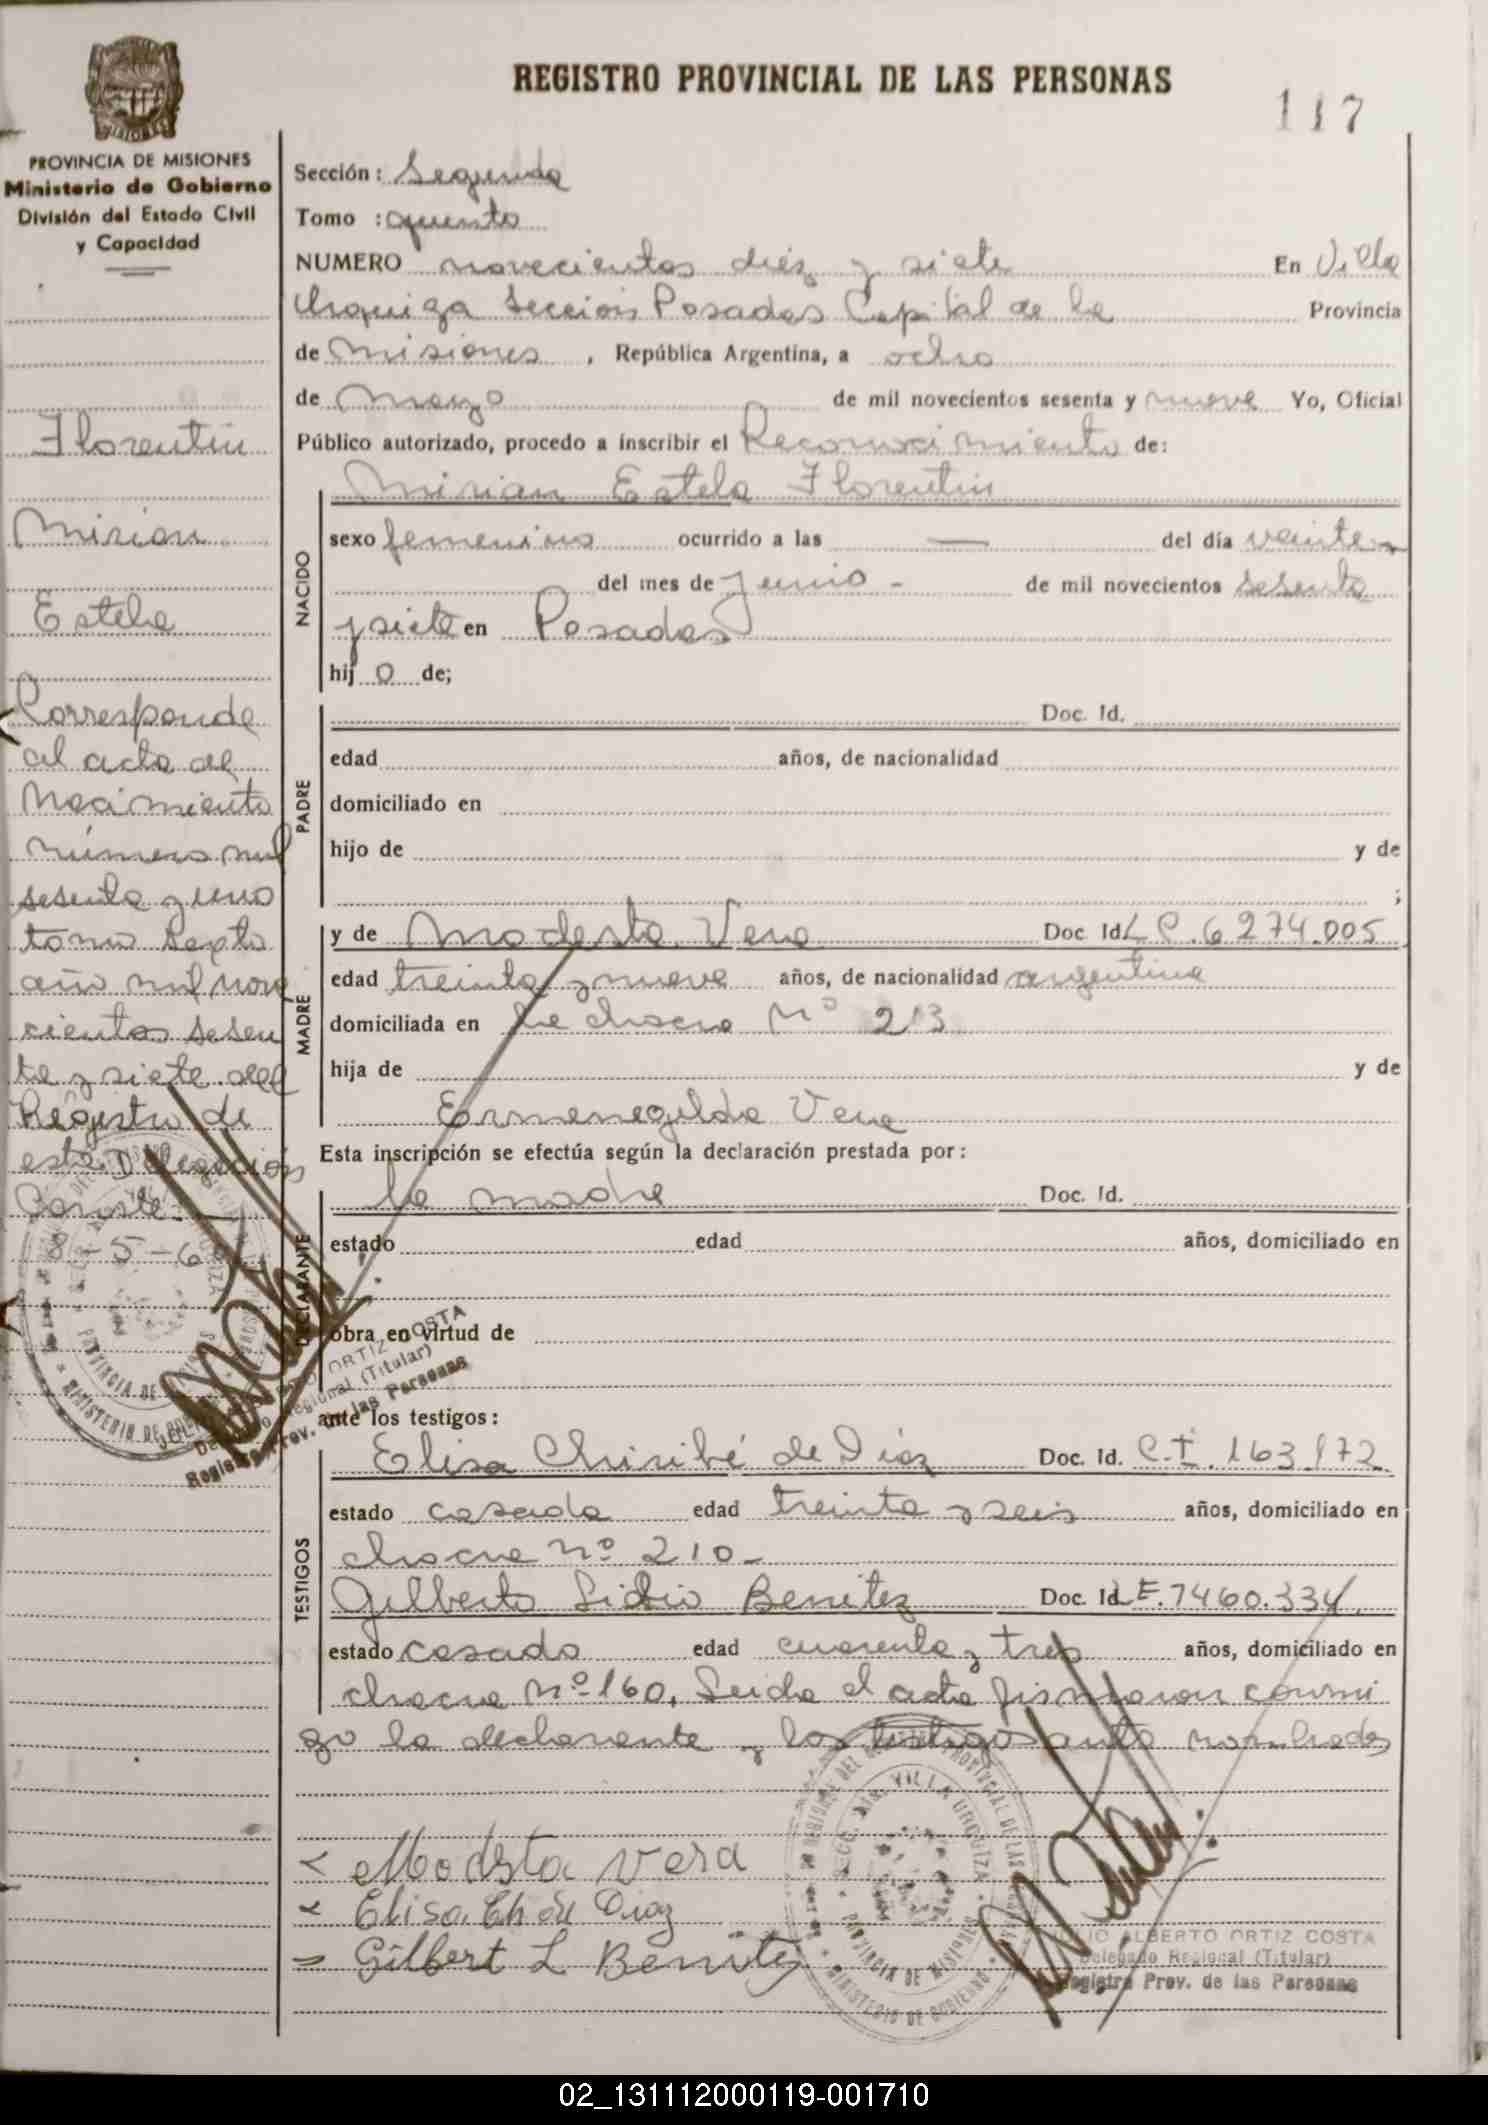 REGISTRO PROVINCIAL DE LAS PERSONAS
117
PROVINCIA DE MISIONES
Ministerio de Gobierno
División del Estado Civil
y Capacidad
Florentin
Mirian
Estela
Corresponde
al acta de
Nacimiento
número mil
sesenta y uno
tomo sexto
año mil nove
cientos sesen
ta y siete del
Registro de
esta Delegación
Conste.-
8-5-6
Sección: Segunda
Tomo : quinto
NUMERO novecientos diez y siete En Villa
Urquiza Sección Posadas Capital de la Provincia
de Misiones , República Argentina, a ocho
de Marzo de mil novecientos sesenta y nueve Yo, Oficial
Público autorizado, procedo a inscribir el Reconocimiento de:
NACIDO
Mirian Estela Florentin
sexo femenino ocurrido a las — del día veinte
del mes de Junio - de mil novecientos sesenta
y siete en Posadas
hij o de;
PADRE
Doc. Id.
edad años, de nacionalidad
domiciliado en
hijo de y de
;
MADRE
y de Modesta Vera Doc Id L C. 6 274.005
edad treinta y nueve años, de nacionalidad argentina
domiciliada en la chacra Nº 213
hija de y de
Ermenegilda Vera
Esta inscripción se efectúa según la declaración prestada por:
DECLARANTE
la madre Doc. Id.
estado edad años, domiciliado en
obra en virtud de
ante los testigos:
TESTIGOS
Elisa Chiribé de Díaz Doc. Id. C.I. 163.172
estado casada edad treinta y seis años, domiciliado en
chacra Nº 210-
Gilberto Lidio Benitez Doc. Id L E. 7460.334
estado casado edad cuarenta y tres años, domiciliado en
chacra Nº 160. Leida el acta firmaron conmi
go la declarante y los testigos antes nombrados
Modesta Vera
Elisa Ch de Diaz
Gilbert L Benitez
JULIO ALBERTO ORTIZ COSTA
Delegado Regional (Titular)
Registro Prov. de las Personas
02_131112000119-001710